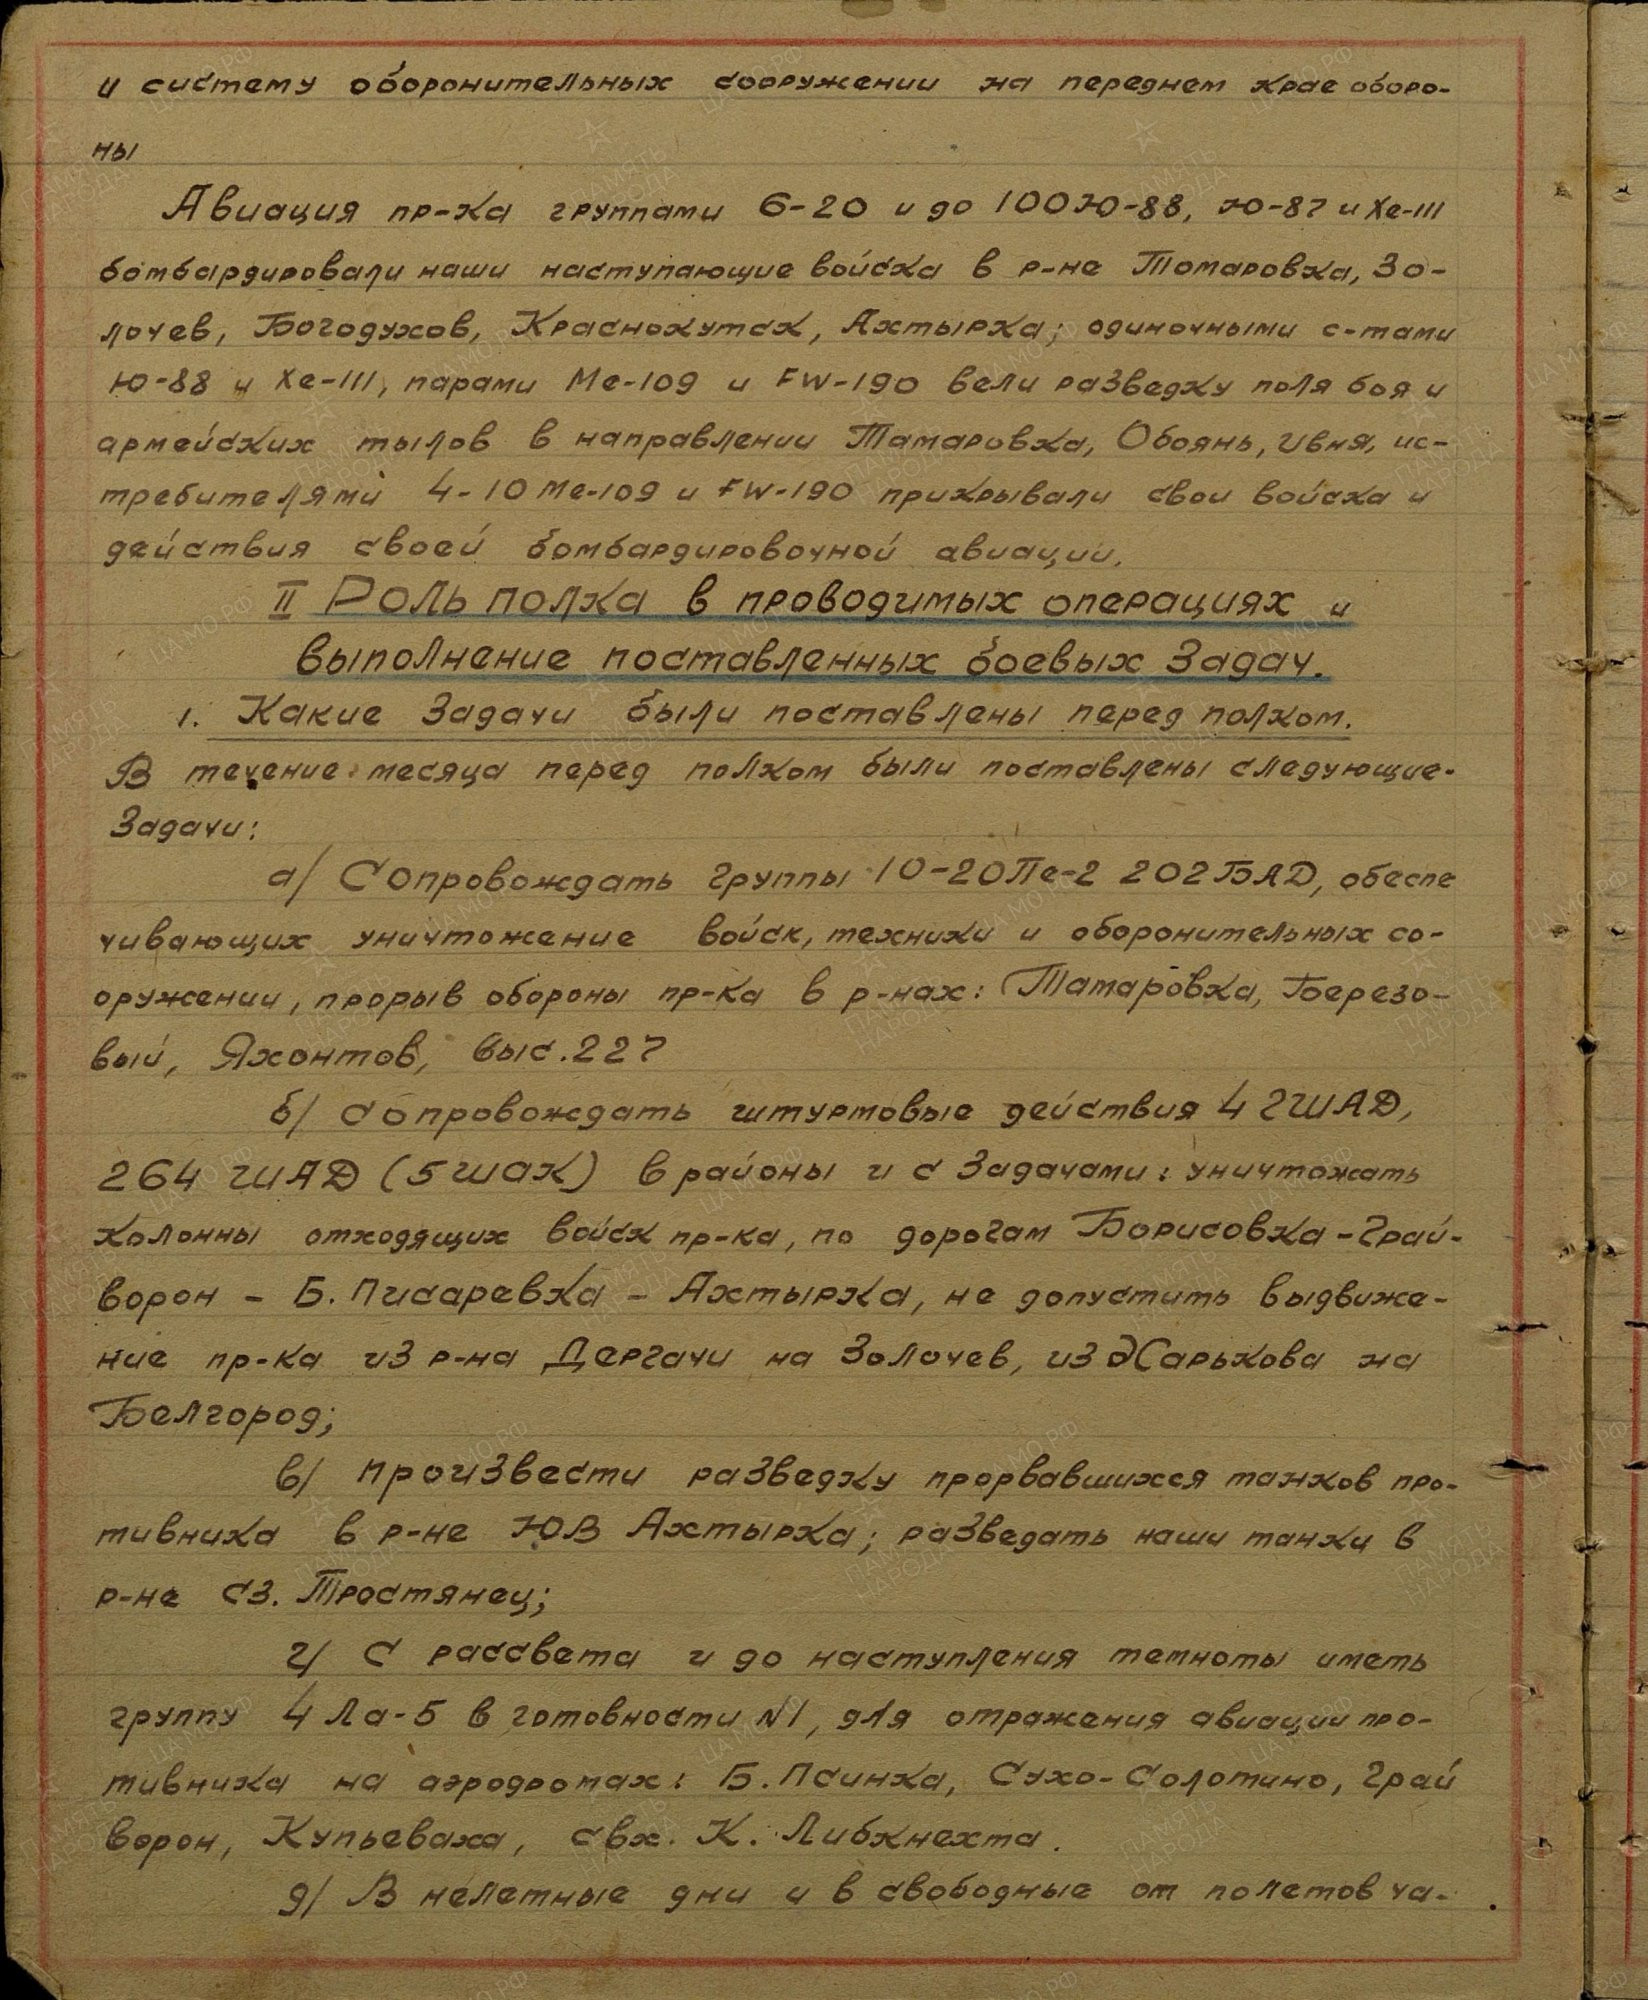 и систему оборонительных сооружении на переднем крае оборо-
ны
Авиация пр-ка группами 6-20 и до 100 Ю-88, Ю-87 и Хе-111
бомбардировали наши наступающие войска в р-не Томаровка, Зо-
лочев, Богодухов, Краснокутск, Ахтырка; одиночными с-тами
Ю-88 и Хе-111, парами Ме-109 и FW-190 вели разведку поля боя и
армейских тылов в направлении Томаровка, Обоянь, Ивня, ис-
требителями 4-10 Ме-109 и FW-190 прикрывали свои войска и
действия своей бомбардировочной авиации.
II Роль полка в проводимых операциях и
выполнение поставленных боевых задач.
1. Какие задачи были поставлены перед полком.
В течение месяца перед полком были поставлены следующие-
задачи:
а/ Сопровождать группы 10-20 Пе-2 202 БАД, обеспе
чивающих уничтожение войск, техники и оборонительных со-
оружении, прорыв обороны пр-ка в р-нах: Татаровка, Березо-
вый, Яхонтов, выс. 227
б/ сопровождать штурмовые действия 4 ГШАД,
264 ШАД (5 ШАК) в районы и с задачами: уничтожать
колонны отходящих войск пр-ка, по дорогам Борисовка - Грай-
ворон - Б. Писаревка - Ахтырка, не допустить выдвиже-
ние пр-ка из р-на Дергачи на Золочев, из Харькова на
Белгород;
в/ произвести разведку прорвавшихся танков про-
тивника в р-не ЮВ Ахтырка; разведать наши танки в
р-не СЗ. Тростянец;
г/ С рассвета и до наступления темноты иметь
группу 4 Ла-5 в готовности N1, для отражения авиации про-
тивника на аэродромах: Б. Псинка, Сухо-Солотино, Грай
ворон, Купьеваха, свх. К. Либкнехта.
д/ В нелетные дни и в свободные от полетов ча-
ПАМЯТЬ НАРОДА
ЦАМО.РФ